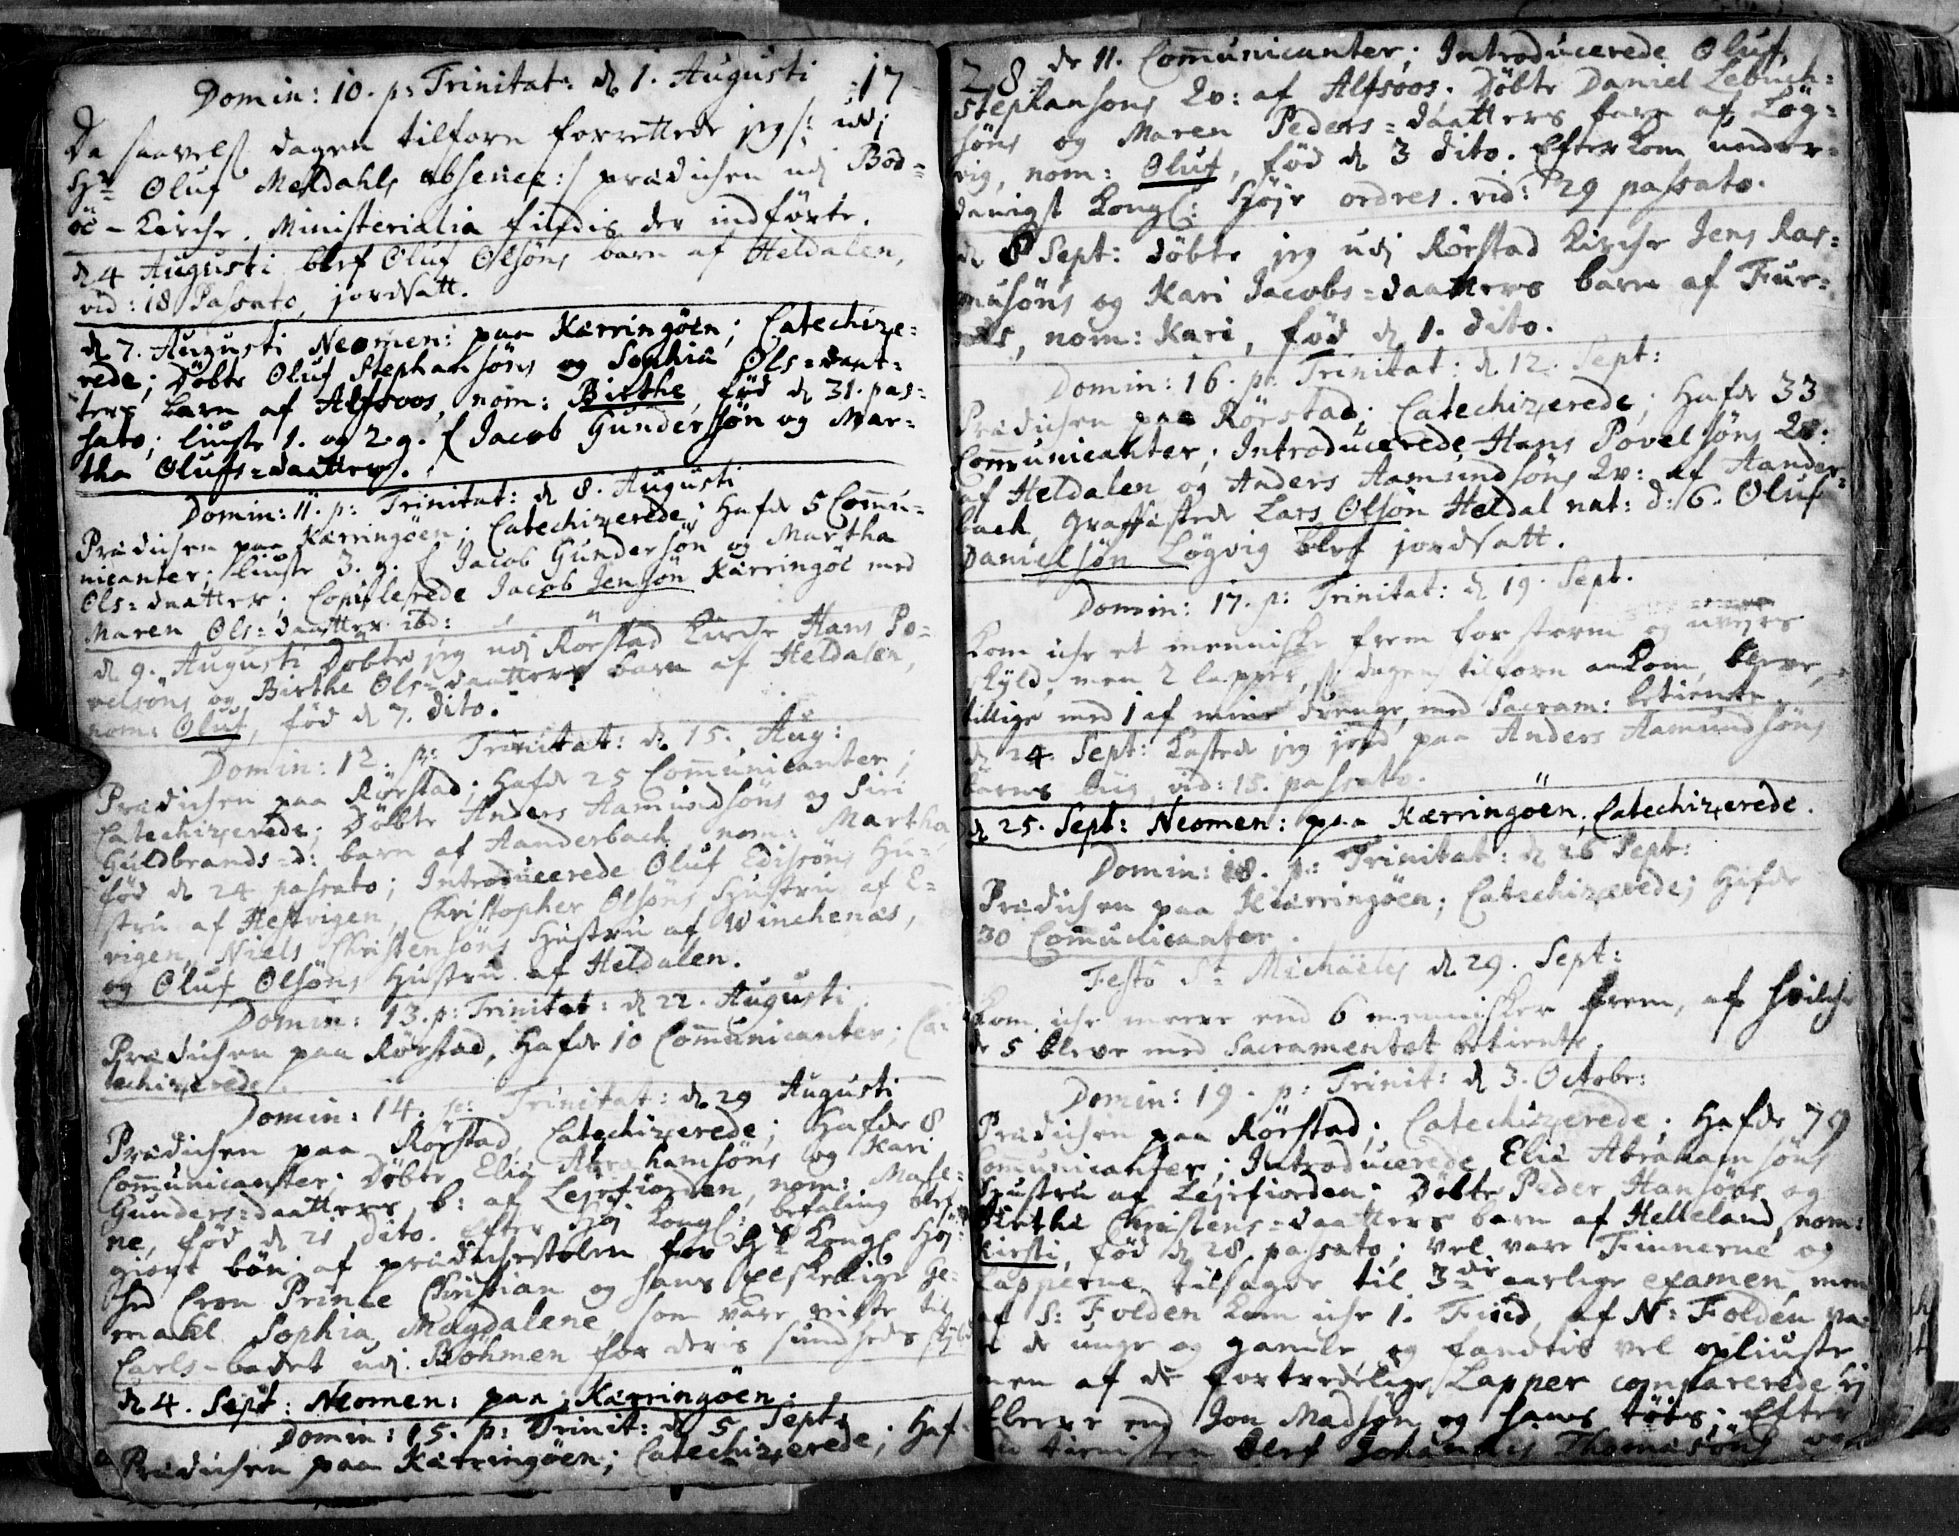 Domin: 10. p: Trinitat: d. 1. Augusti 17
Da saavelsom dagen tilforn forrettede jeg /: udi
Hr Oluf Meldahls absence :/ prædichen udi Bod-
öe-Kirche. Ministerialia findis der indförte.
d 4 Augusti blef Oluf Olsöns barn af Heldalen,
vid: 18 Passato, jordsatt.
d 7. Augusti Neomen: paa Kærringöen; Catechize-
rede; Döbte Oluf Stephansöns og Sophia Ols-daat-
ters barn af Alfsoos, nom: Birthe, föd d 31. pas-
sato; liuste 1. og 2. g. f Jacob Gundersön og Mar-
tha Olufs-daatter.
Domin: 11. p: Trinitat: d 8. Augusti
Prædichen paa Kærringöen; Catechizerede; Hafde 5 Comu-
nicanter; liuste 3. g. f Jacob Gundersön og Martha
Ols-daatter; Copulerede Jacob Jensön Kærringöe med
Maren Ols-daatter ibd:
d 9. Augusti Döbte jeg udi Rörstad Kirche Hans Po-
velsöns og Birthe Ols-daatters barn af Heldalen,
nom: Oluf, föd d 7. dito.
Domin: 12. p: Trinitat: d 15. Aug:
Prædichen paa Rörstad; Hafde 25 Communicanter;
Catechizerede; Döbte Anders Aamundsöns og Siri
Guldbrands-d: barn af Aanderbach, nom: Martha,
föd d 24 passato; Introducerede Oluf Edissöns Hu-
stru af Hestvigen, Christopher Olsöns Hustru af E-
vigen, Niels Christensöns Hustru af Winchenæs,
og Oluf Olsöns Hustru af Heldalen.
Domin: 13. p: Trinitat: d 22. Augusti
Prædichen paa Rörstad, Hafde 10 Communicanter; Ca-
techizerede.
Domin: 14. p: Trinitat: d 29 Augusti
Prædichen paa Rörstad, Catechizerede; Hafde 8
Communicanter; Döbte Eliæ Abrahamsöns og Kari
Gunders-daatters b: af Lejrfiorden, nom:
ne, föd d 21 dito. Efter Höj Kongl: befaling blef
giort bön af prædichestolen for Hs Kongl Höj-
hed Cron Prince Christian og hans elskelige Ge-
mahl Sophia Magdalene, som vare reiste til
Carls-badet udi Böhmen for deris sundheds skyld
d 4. Sept: Neomen: paa Kærringöen.
Domin: 15. p: Trinit: d 5. Sept:
Prædichen paa Kærringöen; Catechizerede; Haf-
28. de 11. Communicanter; Introducerede Oluf
Stephansöns Qv: af Alfsoos. Döbte Daniel Lebuch-
söns og Maren Peders-daatters barn af Lög-
vig, nom: Oluf, föd d 3 dito. Efterkom under-
danigst Kongl: Höje ordres. vid: 29 passato.
d 8 Sept: döbte jeg udi Rörstad Kirche Jens Ras-
musöns og Kari Jacobs-daatters barn af Fur-
, nom: Kari, föd d 1. dito.
Domin: 16. p: Trinitat: d 12. Sept:
Prædichen paa Rörstad; Catechizerede; Hafde 33
Communicanter; Introducerede Hans Povelsöns Qv:
af Heldalen og Anders Aamundsöns Qv: af Aander-
bach, Graffæstede Lars Olsön Heldal nat: d: 6. Oluf
Danielsön Lögvig blef jordsatt.
Domin: 17. p: Trinitat: d 19. Sept.
Kom iche et menniske frem for storm og uvejrs
skyld, men 2 lapper, dagen tilforn ankom, bleve,
tillige med 1 af mine drenge, med Sacram: betiente.
d 24. Sept: Kastede jeg jord paa Anders Aamundsöns
barns liig, vid: 15. passato.
d 25. Sept: Neomen: paa Kærringöen, Catechizerede.
Domin: 18. p: Trinitat: d 26 Sept:
Prædichen paa Kiærringöen; Catechizerede; Hafde
30 Communicanter.
Festo St Michäelis d 29. Sept:
Kom iche meere end 6 mennisker frem, af hvilche
de 5 bleve med Sacramentet betiente.
Domin: 19. p: Trinit: d 3. Octobr:
Prædichen paa Rörstad; Catechizerede; Hafde 79
Communicanter; Introducerede Eliæ Abrahamsöns
Hustru af Lejrfiorden; Döbte Peder Hansöns og
Birthe Christens-daatters barn af Helleland, nom:
Kirsti, föd d 28. passato; vel vare Finnerne og
Lapperne tilsagde til 3de aarlige examen, men
af S: Folden kom iche 1. Find, af N: Folden va-
re de unge og gamle og fandtis vel opliuste,
men af de fortredelige Lapper comparerede ej
fleere end Jon Madsön og hans ; Efter
tienisten blef Johannis Thomasöns